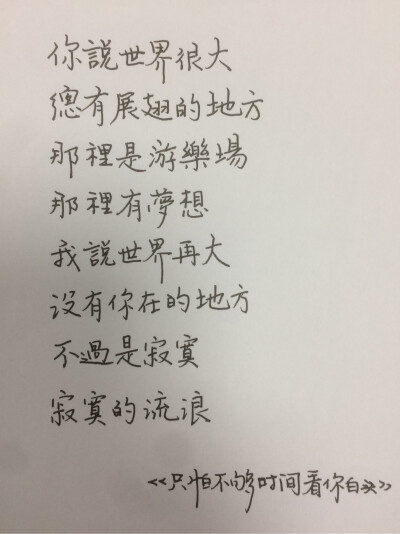 你說世界很大
總有展翅的地方
那裡是游樂場
那裡有夢想
我說世界再大
没有你在的地方
不過是寂寞
寂寞的流浪
《只怕不够时间看你白头》